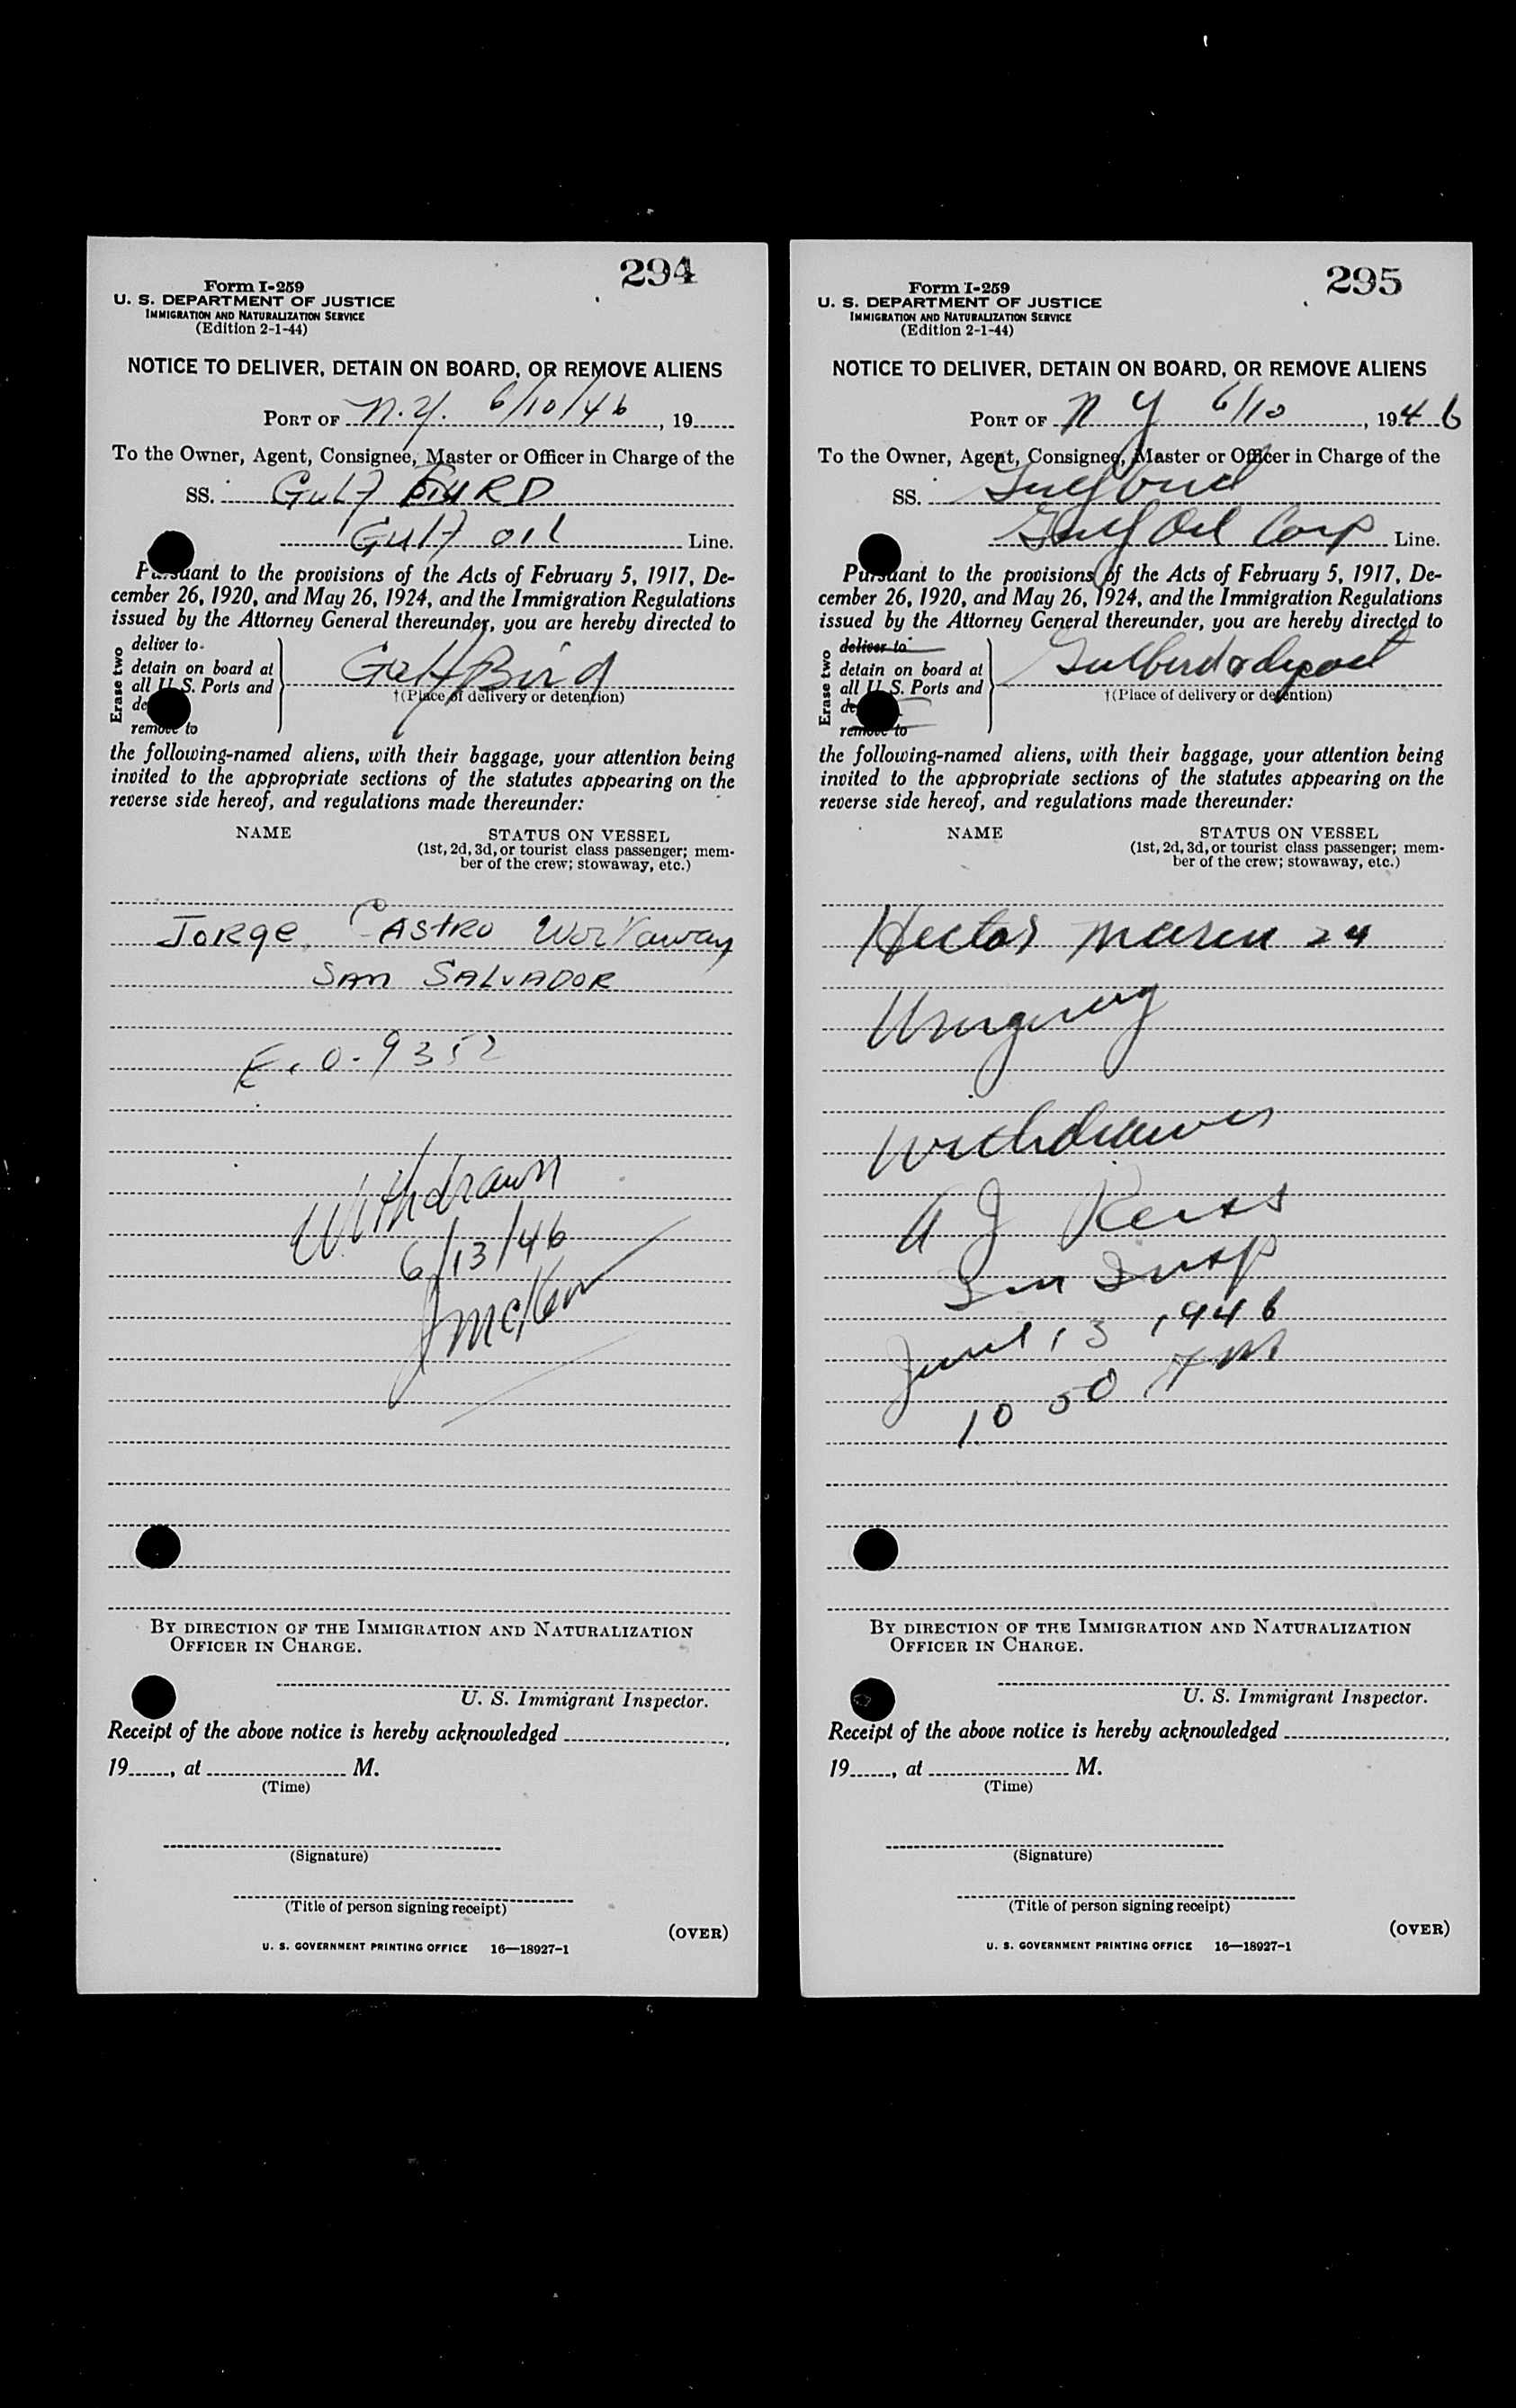 294
Form I-259
U. S. DEPARTMENT OF JUSTICE
IMMIGRATION AND NATURALIZATION SERVICE
(Edition 2-1-44)
NOTICE TO DELIVER, DETAIN ON BOARD, OR REMOVE ALIENS
PORT OF N.Y. 6/10/46, 19
To the Owner, Agent, Consignee, Master or Officer in Charge of the
SS. Gulf BIRD
Gulf OIL Line.
Pursuant to the provisions of the Acts of February 5, 1917, De-
cember 26, 1920, and May 26, 1924, and the Immigration Regulations
issued by the Attorney General thereunder, you are hereby directed to
Erase two
deliver to
detain on board at
all U. S. Ports and
de
remove to
Gulf Bird
†(Place of delivery or detention)
the following-named aliens, with their baggage, your attention being
invited to the appropriate sections of the statutes appearing on the
reverse side hereof, and regulations made thereunder:
NAME STATUS ON VESSEL
(1st, 2d, 3d, or tourist class passenger; mem-
ber of the crew; stowaway, etc.)
Jorge CASTRO Workaway
SAN SALVADOR
E.O. 9352
Withdrawn
6/13/46
BY DIRECTION OF THE IMMIGRATION AND NATURALIZATION
OFFICER IN CHARGE.
U. S. Immigrant Inspector.
Receipt of the above notice is hereby acknowledged
19, at M.
(Time)
(Signature)
(Title of person signing receipt)
(OVER)
U. S. GOVERNMENT PRINTING OFFICE 16—18927-1
295
Form I-259
U. S. DEPARTMENT OF JUSTICE
IMMIGRATION AND NATURALIZATION SERVICE
(Edition 2-1-44)
NOTICE TO DELIVER, DETAIN ON BOARD, OR REMOVE ALIENS
PORT OF N Y 6/10, 1946
To the Owner, Agent, Consignee, Master or Officer in Charge of the
SS. Gulfbird
Gulf Oil Corp Line.
Pursuant to the provisions of the Acts of February 5, 1917, De-
cember 26, 1920, and May 26, 1924, and the Immigration Regulations
issued by the Attorney General thereunder, you are hereby directed to
Erase two
deliver to
detain on board at
all U. S. Ports and
de
remove to
Gulfbird & deport
†(Place of delivery or detention)
the following-named aliens, with their baggage, your attention being
invited to the appropriate sections of the statutes appearing on the
reverse side hereof, and regulations made thereunder:
NAME STATUS ON VESSEL
(1st, 2d, 3d, or tourist class passenger; mem-
ber of the crew; stowaway, etc.)
Hector 24
Uruguay
Withdrawn
A J
Im Insp
June 13, 1946
10 50 AM
BY DIRECTION OF THE IMMIGRATION AND NATURALIZATION
OFFICER IN CHARGE.
U. S. Immigrant Inspector.
Receipt of the above notice is hereby acknowledged
19, at M.
(Time)
(Signature)
(Title of person signing receipt)
(OVER)
U. S. GOVERNMENT PRINTING OFFICE 16—18927-1